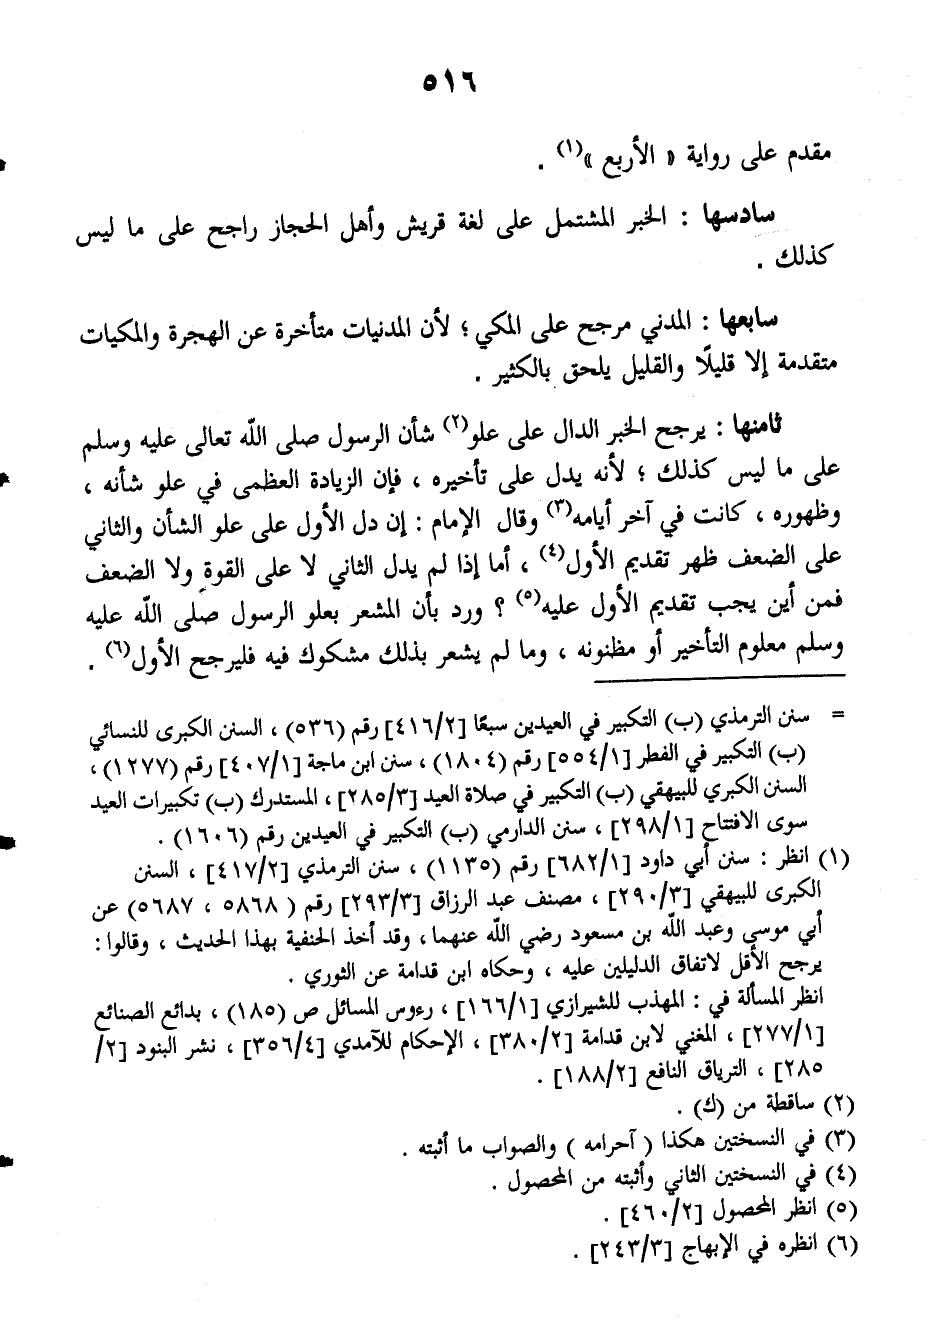 ٥١٦
مقدم على رواية « الأربع »(١) .
سادسها : الخبر المشتمل على لغة قريش وأهل الحجاز راجح على ما ليس
كذلك .
سابعها : المدني مرجح على المكي ؛ لأن المدنيات متأخرة عن الهجرة والمكيات
متقدمة إلا قليلًا والقليل يلحق بالكثير .
ثامنها : يرجح الخبر الدال على علو(٢) شأن الرسول صلى الله تعالى عليه وسلم
على ما ليس كذلك ؛ لأنه يدل على تأخيره ، فإن الزيادة العظمى في علو شأنه ،
وظهوره ، كانت في آخر أيامه(٣) وقال الإمام : إن دل الأول على علو الشأن والثاني
على الضعف ظهر تقديم الأول(٤) ، أما إذا لم يدل الثاني لا على القوة ولا الضعف
فمن أين يجب تقديم الأول عليه(٥) ؟ ورد بأن المشعر بعلو الرسول صلى الله عليه
وسلم معلوم التأخير أو مظنونه ، وما لم يشعر بذلك مشكوك فيه فليرجح الأول(٦) .
= سنن الترمذي (ب) التكبير في العيدين سبعًا [٤١٦/٢] رقم (٥٣٦) ، السنن الكبرى للنسائي
(ب) التكبير في الفطر [٥٥٤/١] رقم (١٨٠٤) ، سنن ابن ماجة [٤٠٧/١] رقم (١٢٧٧) ،
السنن الكبري للبيهقي (ب) التكبير في صلاة العيد [٢٨٥/٣] ، المستدرك (ب) تكبيرات العيد
سوى الافتتاح [٢٩٨/١] ، سنن الدارمي (ب) التكبير في العيدين رقم (١٦٠٦) .
(١) انظر : سنن أبي داود [٦٨٢/١] رقم (١١٣٥) ، سنن الترمذي [٤١٧/٢] ، السنن
الكبرى للبيهقي [٢٩٠/٣] ، مصنف عبد الرزاق [٢٩٣/٣] رقم ( ٥٨٦٨ ، ٥٦٨٧) عن
أبي موسى وعبد الله بن مسعود رضي الله عنهما، وقد أخذ الحنفية بهذا الحديث ، وقالوا :
يرجح الأقل لاتفاق الدليلين عليه ، وحكاه ابن قدامة عن الثوري .
انظر المسألة في : المهذب للشيرازي [١٦٦/١] ، رءوس المسائل ص (١٨٥) ، بدائع الصنائع
[٢٧٧/١] ، المغني لابن قدامة [٣٨٠/٢] ، الإحكام للآمدي [٣٥٦/٤] ، نشر البنود [٢/
٢٨٥] ، الترياق النافع [١٨٨/٢] .
(٢) ساقطة من (ك) .
(٣) في النسختين هكذا ( آحرامه ) والصواب ما أثبته .
(٤) في النسختين الثاني وأثبته من المحصول .
(٥) انظر المحصول [٤٦٠/٢] .
(٦) انظره في الإبهاج [٢٤٣/٣] .